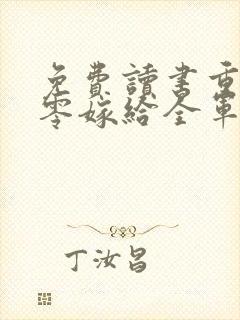 免費讀書重
零嫁給全軍
丁汝昌